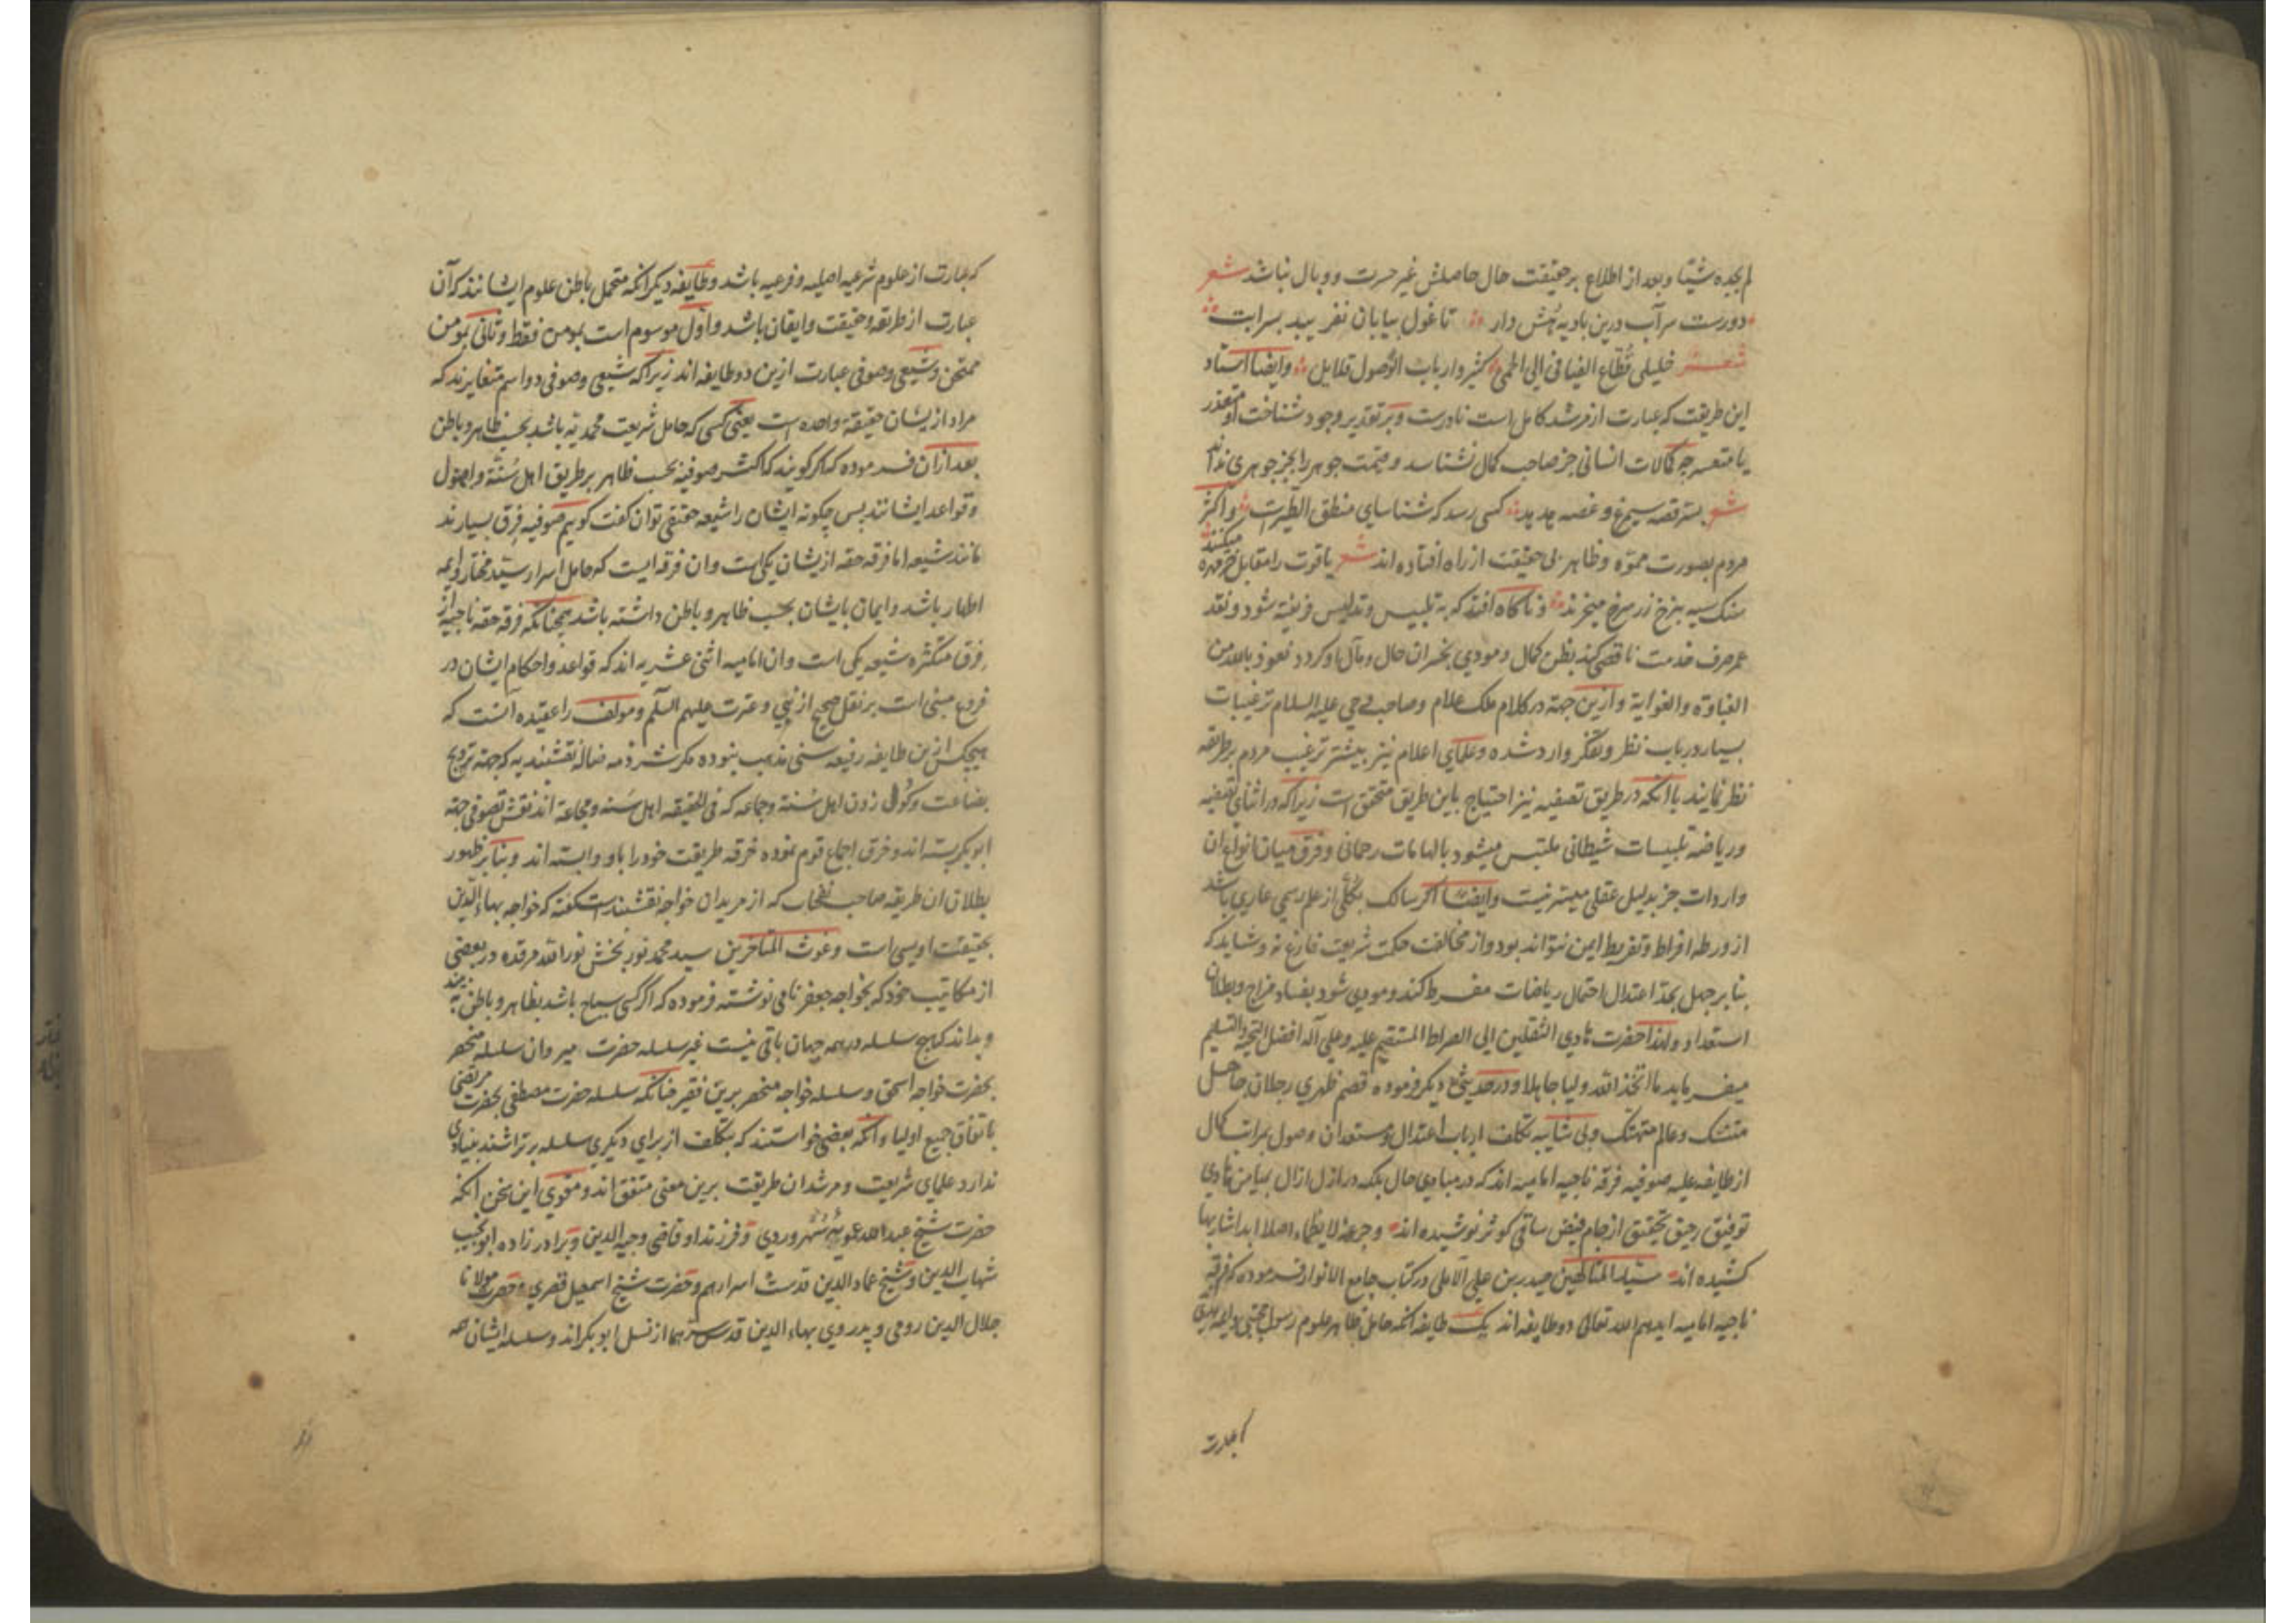 لم یجده شیئا و بعد از اطلاع بر حقیقت حال حاصلش غیر حسرت و وبال نباشد شعر
دورست سر آب درین بادیه هش دار تا غول بیابان نفریبد بسرابت
شعر خلیلی قطاع الفیافی الی الحمی کثیر و ارباب الوصول قلایل و ایضا استاد
این طریقت که عبارت از مرشد کامل است نادرست و بر تقدیر وجود شناخت او متعذر
یا متعسر چه کمالات انسانی جز صاحب کمال نشناسد و قیمت جوهر را بجز جوهری نداند
شعر بسر قصه سیمرغ و غصه هدهد کسی رسد که شناسای منطق الطیرست و اکثر
مردم بصورت مموه و ظاهر بی حقیقت از راه افتاده اند شعر یاقوت را مقابل خرمهره میکنند
سنک سیه بنرخ زر سرخ میخرند و ناکاه افتد که به تلبیس و تدلیس فریفته شود و نقد
عمر صرف خدمت ناقصی کند بظن کمال و مودی بخسران حال و مآل او کردد نعوذ بالله من
الغباوة والغوایة و ازین جهة در کلام ملک علام و صاحب وحی علیه السلام ترغیبات
بسیار در باب نظر و تفکر وارد شده و علمای اعلام نیز بیشتر ترغیب مردم بر طریقه
نظر نمایند با انکه در طریق تصفیه نیز احتیاج باین طریق متحقق است زیرا که در اثنای تصفیه
و ریاضة تلبیسات شیطانی ملتبس میشود بالهامات رحمانی و فرق میان انواع ان
واردات جز بدلیل عقلی میسر نیست و ایضا اکر سالک بکلی از علم رسمی عاری باشد
از ورطه افراط و تفریط ایمن نتواند بود و از مخالفت حکمت شریعت فارغ نه و شاید که
بنا بر جهل بحد اعتدال احتمال ریاضات مفرط کند و مودی شود بفساد مزاج و بطلان
استعداد و لهذا حضرت هادی الثقلین الی الصراط المستقیم علیه و علی آله افضل التحیة والتسلیم
میفرماید ما اتخذ الله ولیا جاهلا و در حدیثی دیکر فرموده قصم ظهری رجلان جاهل
متنسک و عالم متهتک و بی شایبه تکلف ارباب اعتدال و مستعدان وصول مراتب کمال
از طایفه علیه صوفیه فرقه ناجیه امامیه اند که در مبادی حال بلکه در ازل ازال بمیامن هادی
توفیق رحیق تحقیق از جام فیض ساقی کوثر نوشیده اند و جرعه لا یظماء اصلا ابدا شاربها
کشیده اند سید المتالهین حیدر بن علی الآملی در کتاب جامع الانوار فرموده که فرقه
ناجیه امامیه ایدهم الله تعالی دو طایفه اند یک طایفه انکه حامل ظاهر علوم رسول مجتبی و ایمه هدی
که عبارت
که عبارت از علوم شرعیه اصلیه و فرعیه باشد و طایفه دیکر انکه متحمل باطن علوم ایشانند که آن
عبارت از طریقه و حقیقت و ایقان باشد و اول موسوم است بمومن فقط و ثانی بمومن
ممتحن و شیعی و صوفی عبارت ازین دو طایفه اند زیرا که شیعی و صوفی دو اسم متغایرند که
مراد ازیشان حقیقة واحده است یعنی کسی که حامل شریعت محمدیه باشد بحسب ظاهر و باطن
بعد ازان فرموده که اکر کویند که اکثر صوفیه بحسب ظاهر بر طریق اهل سنة و اصول
و قواعد ایشانند پس چکونه ایشان را شیعه حقیقی توان گفت کوییم صوفیه فرق بسیارند
مانند شیعه اما فرقه حقه ازیشان یکی است و ان فرقه ایست که حامل اسرار سید مختار و ایمه
اطهار باشد و ایمان بایشان بحسب ظاهر و باطن داشته باشد همچنانکه فرقه حقه ناجیه از
فرق متکثره شیعه یکی است و ان امامیه اثنی عشریه اند که قواعد و احکام ایشان در
فروع مبنی است بر نقل صحیح از نبی و عترت علیهم السلم و مولف را عقیده آنست که
هیچکس ازین طایفه رفیعه سنی مذهب نبوده مکر شرذمه ضاله نقشبندیه که جهة ترویج
بضاعت و کول زدن اهل سنة و جماعه که فی الحقیقه اهل سنه و مجاعة اند نقش تصوف جهة
ابوبکر بسته اند و خرق اجماع قوم نموده خرقه طریقت خود را باو وابسته اند و بنا بر ظهور
بطلان ان طریقه صاحب نفحات که از مریدان خواجه نقشبند است کفته که خواجه بهاء الدین
بحقیقت اویسی است و غوث المتاخرین سید محمد نوربخش نور الله مرقده در بعضی
از مکاتیب خود که بخواجه جعفر نامی نوشته فرموده که اگر کسی سیاح باشد بظاهر و باطن ببیند
و بداند که هیچ سلسله در همه جهان باقی نیست غیر سلسله حضرت میر و ان سلسله منحصر
بحضرت خواجه اسحق و سلسله خواجه منحصر برین فقیر چنانکه سلسله حضرت مصطفی بحضرت مرتضی
باتفاق جمیع اولیا و انکه بعضی خواستند که بتکلف از برای دیکری سلسله بر تراشند بنیادی
ندارد علمای شریعت و مرشدان طریقت برین معنی متفق اند و مقوی این سخن انکه
حضرت شیخ عبدالله عمویه سهروردی و فرزند او قاضی وجیه الدین و برادر زاده ابو نجیب
شهاب الدین و شیخ عماد الدین قدست اسرارهم و حضرت شیخ اسمعیل قصری و حضرت مولانا
جلال الدین رومی و پدر وی بهاء الدین قدس سرهما از نسل ابوبکراند و سلسله ایشان